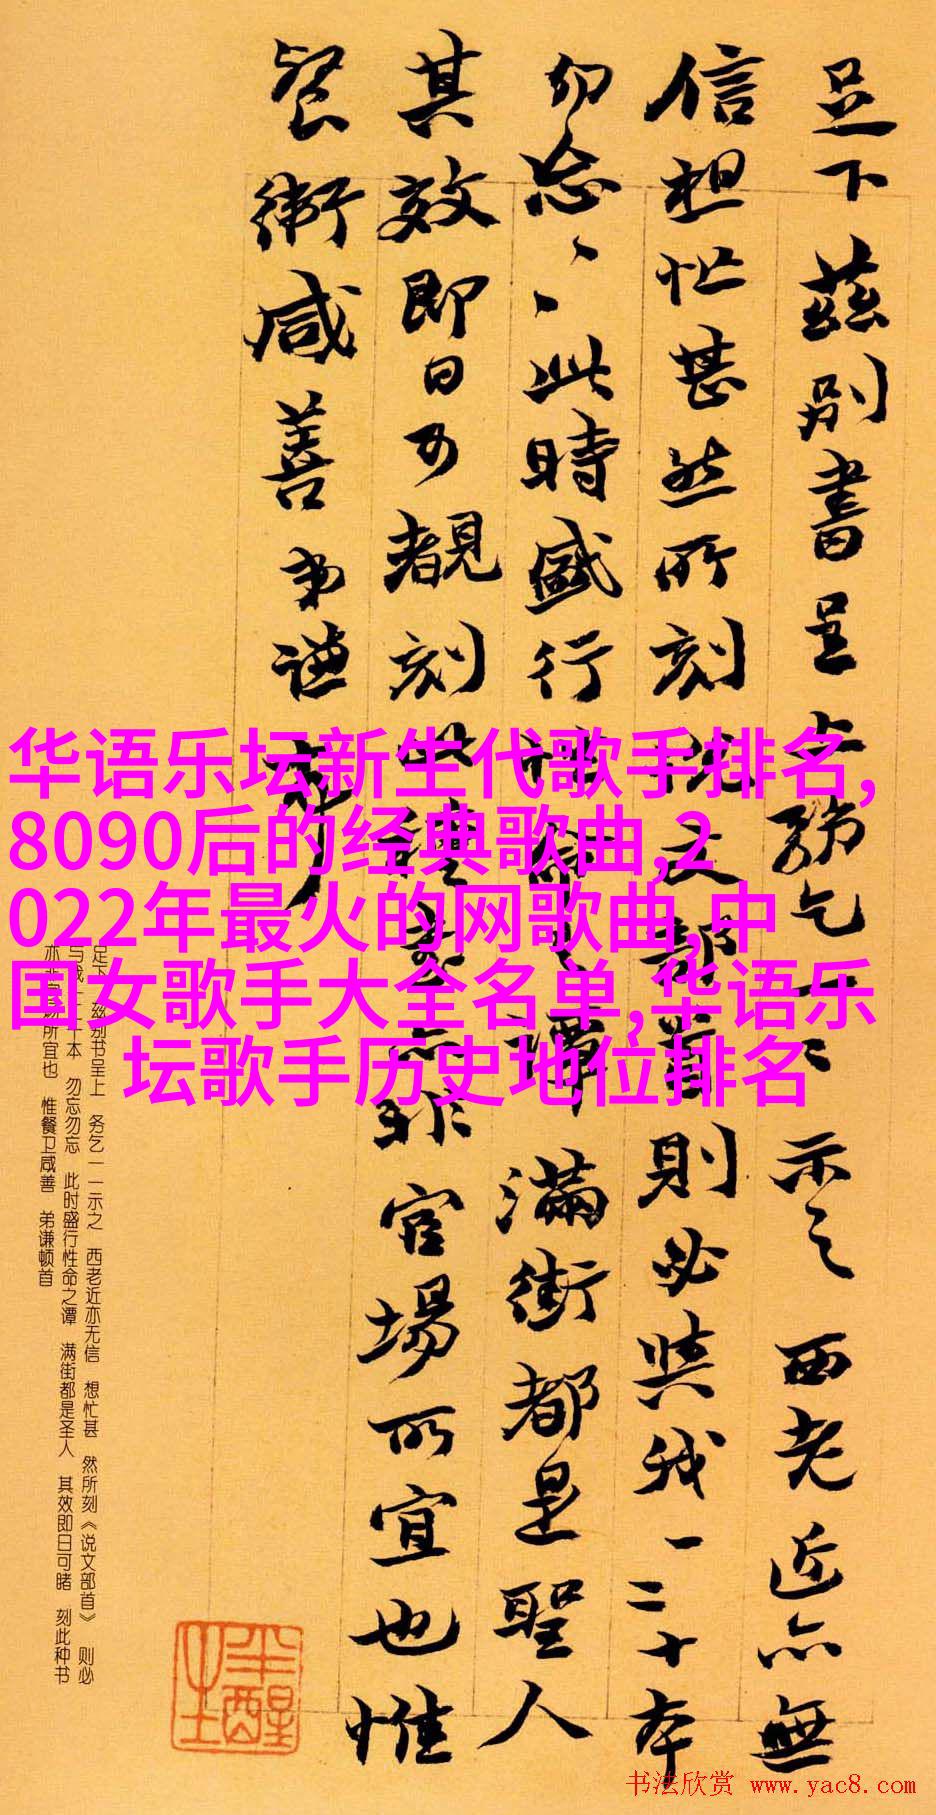 足下茲別書呈上務乞一一示之西老近亦無
信想忙甚然所刻說文部首則必與我一二十本
勿忘、、此時盛行性命之譚滿街都是聖人
其效即日可覩刻此種書亦非官場所宜也惟
餐衛咸善弟謙頓首
华语乐坛新生代歌手排名,
8090后的经典歌曲,2
022年最火的网歌曲,中
国女歌手大全名单,华语乐
坛歌手历史地位排名
足下 兹别书呈上 务乞一一示之 西老近亦无信 想忙甚 然所刻《说文部首》 则必
与我一二十本 勿忘勿忘 此时盛行性命之谭 满街都是圣人 其效即日可睹 刻此种书
亦非官场所宜也 惟餐卫咸善 弟谦顿首
半醒生
书法欣赏 www.yac8.com